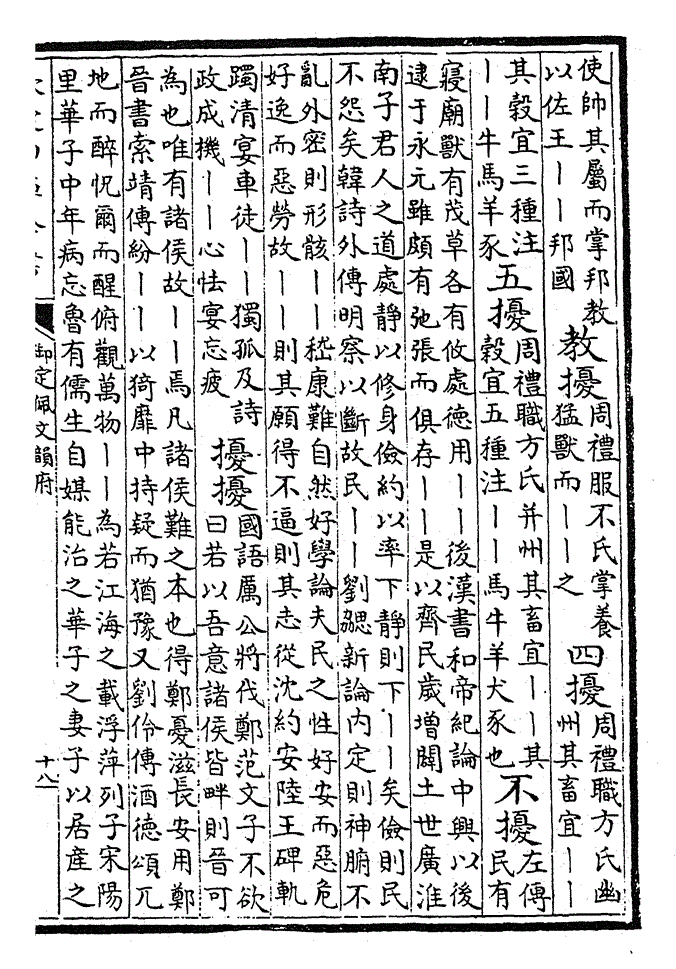 使帥其屬而掌邦教
以佐王——邦國
教擾
周禮服不氏掌養
猛獸而——之
四擾
周禮職方氏幽
州其畜宜——
其穀宜三種注
——牛馬羊豕
五擾
周禮職方氏并州其畜宜——其
穀宜五種注——馬牛羊犬豕也
不擾
左傳
民有
寢廟獸有茂草各有攸處德用——後漢書和帝紀論中興以後
逮于永元雖頗有弛張而俱存——是以齊民歲增闢土世廣淮
南子君人之道處靜以修身儉約以率下靜則下——矣儉則民
不怨矣韓詩外傳明察以斷故民——劉勰新論內定則神腑不
亂外密則形骸——嵇康難自然好學論夫民之性好安而惡危
好逸而惡勞故——則其願得不逼則其志從沈約安陸王碑軌
躅清宴車徒——獨孤及詩
政成機——心怯宴忘疲
擾擾
國語厲公將伐鄭范文子不欲
曰若以吾意諸侯皆畔則晉可
為也唯有諸侯故——焉凡諸侯難之本也得鄭憂滋長安用鄭
晉書索靖傳紛——以猗靡中持疑而猶豫又劉伶傳酒德頌兀
地而醉怳爾而醒俯觀萬物——為若江海之載浮萍列子宋陽
里華子中年病忘魯有儒生自媒能治之華子之妻子以居產之
御定佩文韻府
十八